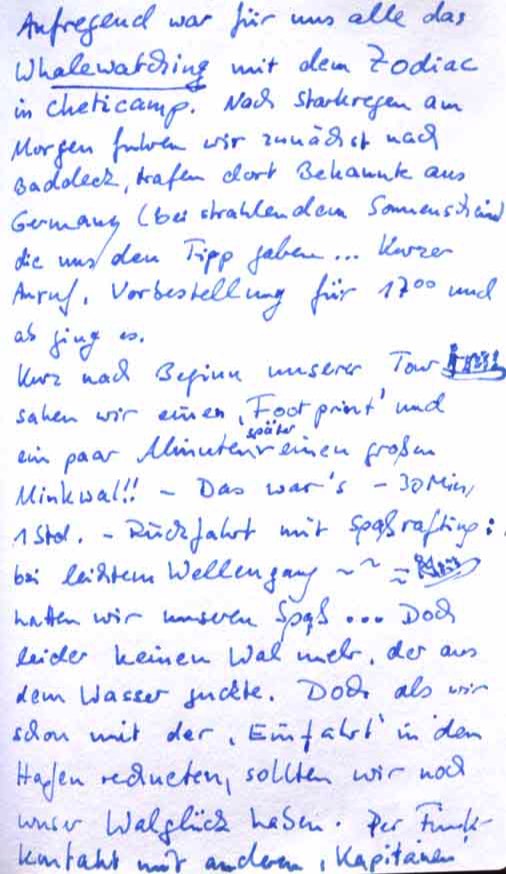 Aufregend war für uns alle das
Whalewatching mit dem Zodiac
in Cheticamp. Nach Starkregen am
Morgen fuhren wir zunächst nach
Baddeck, trafen dort Bekannte aus
Germany (bei strahlendem Sonnenschein)
die uns den Tipp gaben... Kurzer
Anruf, Vorbestellung für 17⁰⁰ und
ab ging es.
Kurz nach Beginn unserer Tour
sahen wir einen ‚Footprint' und
ein paar Minuten später einen großen
Minkwal!! – Das war's – 30 Min,
1 Std. – Rückfahrt mit Spaßrafting:
bei leichtem Wellengang ~ ~ ≈
hatten wir unseren Spaß ... Doch
leider keinen Wal mehr, der aus
dem Wasser guckte. Doch als wir
schon mit der ‚Einfahrt' in den
Hafen rechneten, sollten wir noch
unser Walglück haben. Der Funk-
kontakt mit anderen ‚Kapitänen'